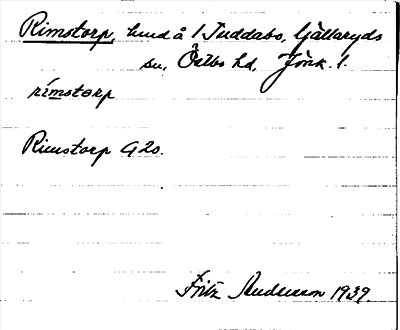 Rimstorp, lund å 1 Tuddabo, Gällaryds
sn, Östbo hd, Jönk. l.
rímstorp
Rimstorp G20.
Fritz Andersson 1939.